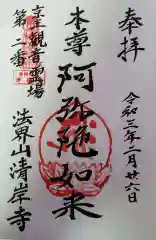 奉拝
令和三年二月廿六日
本尊
阿弥陀如来
京都観音霊場
第二番
法界山清岸寺